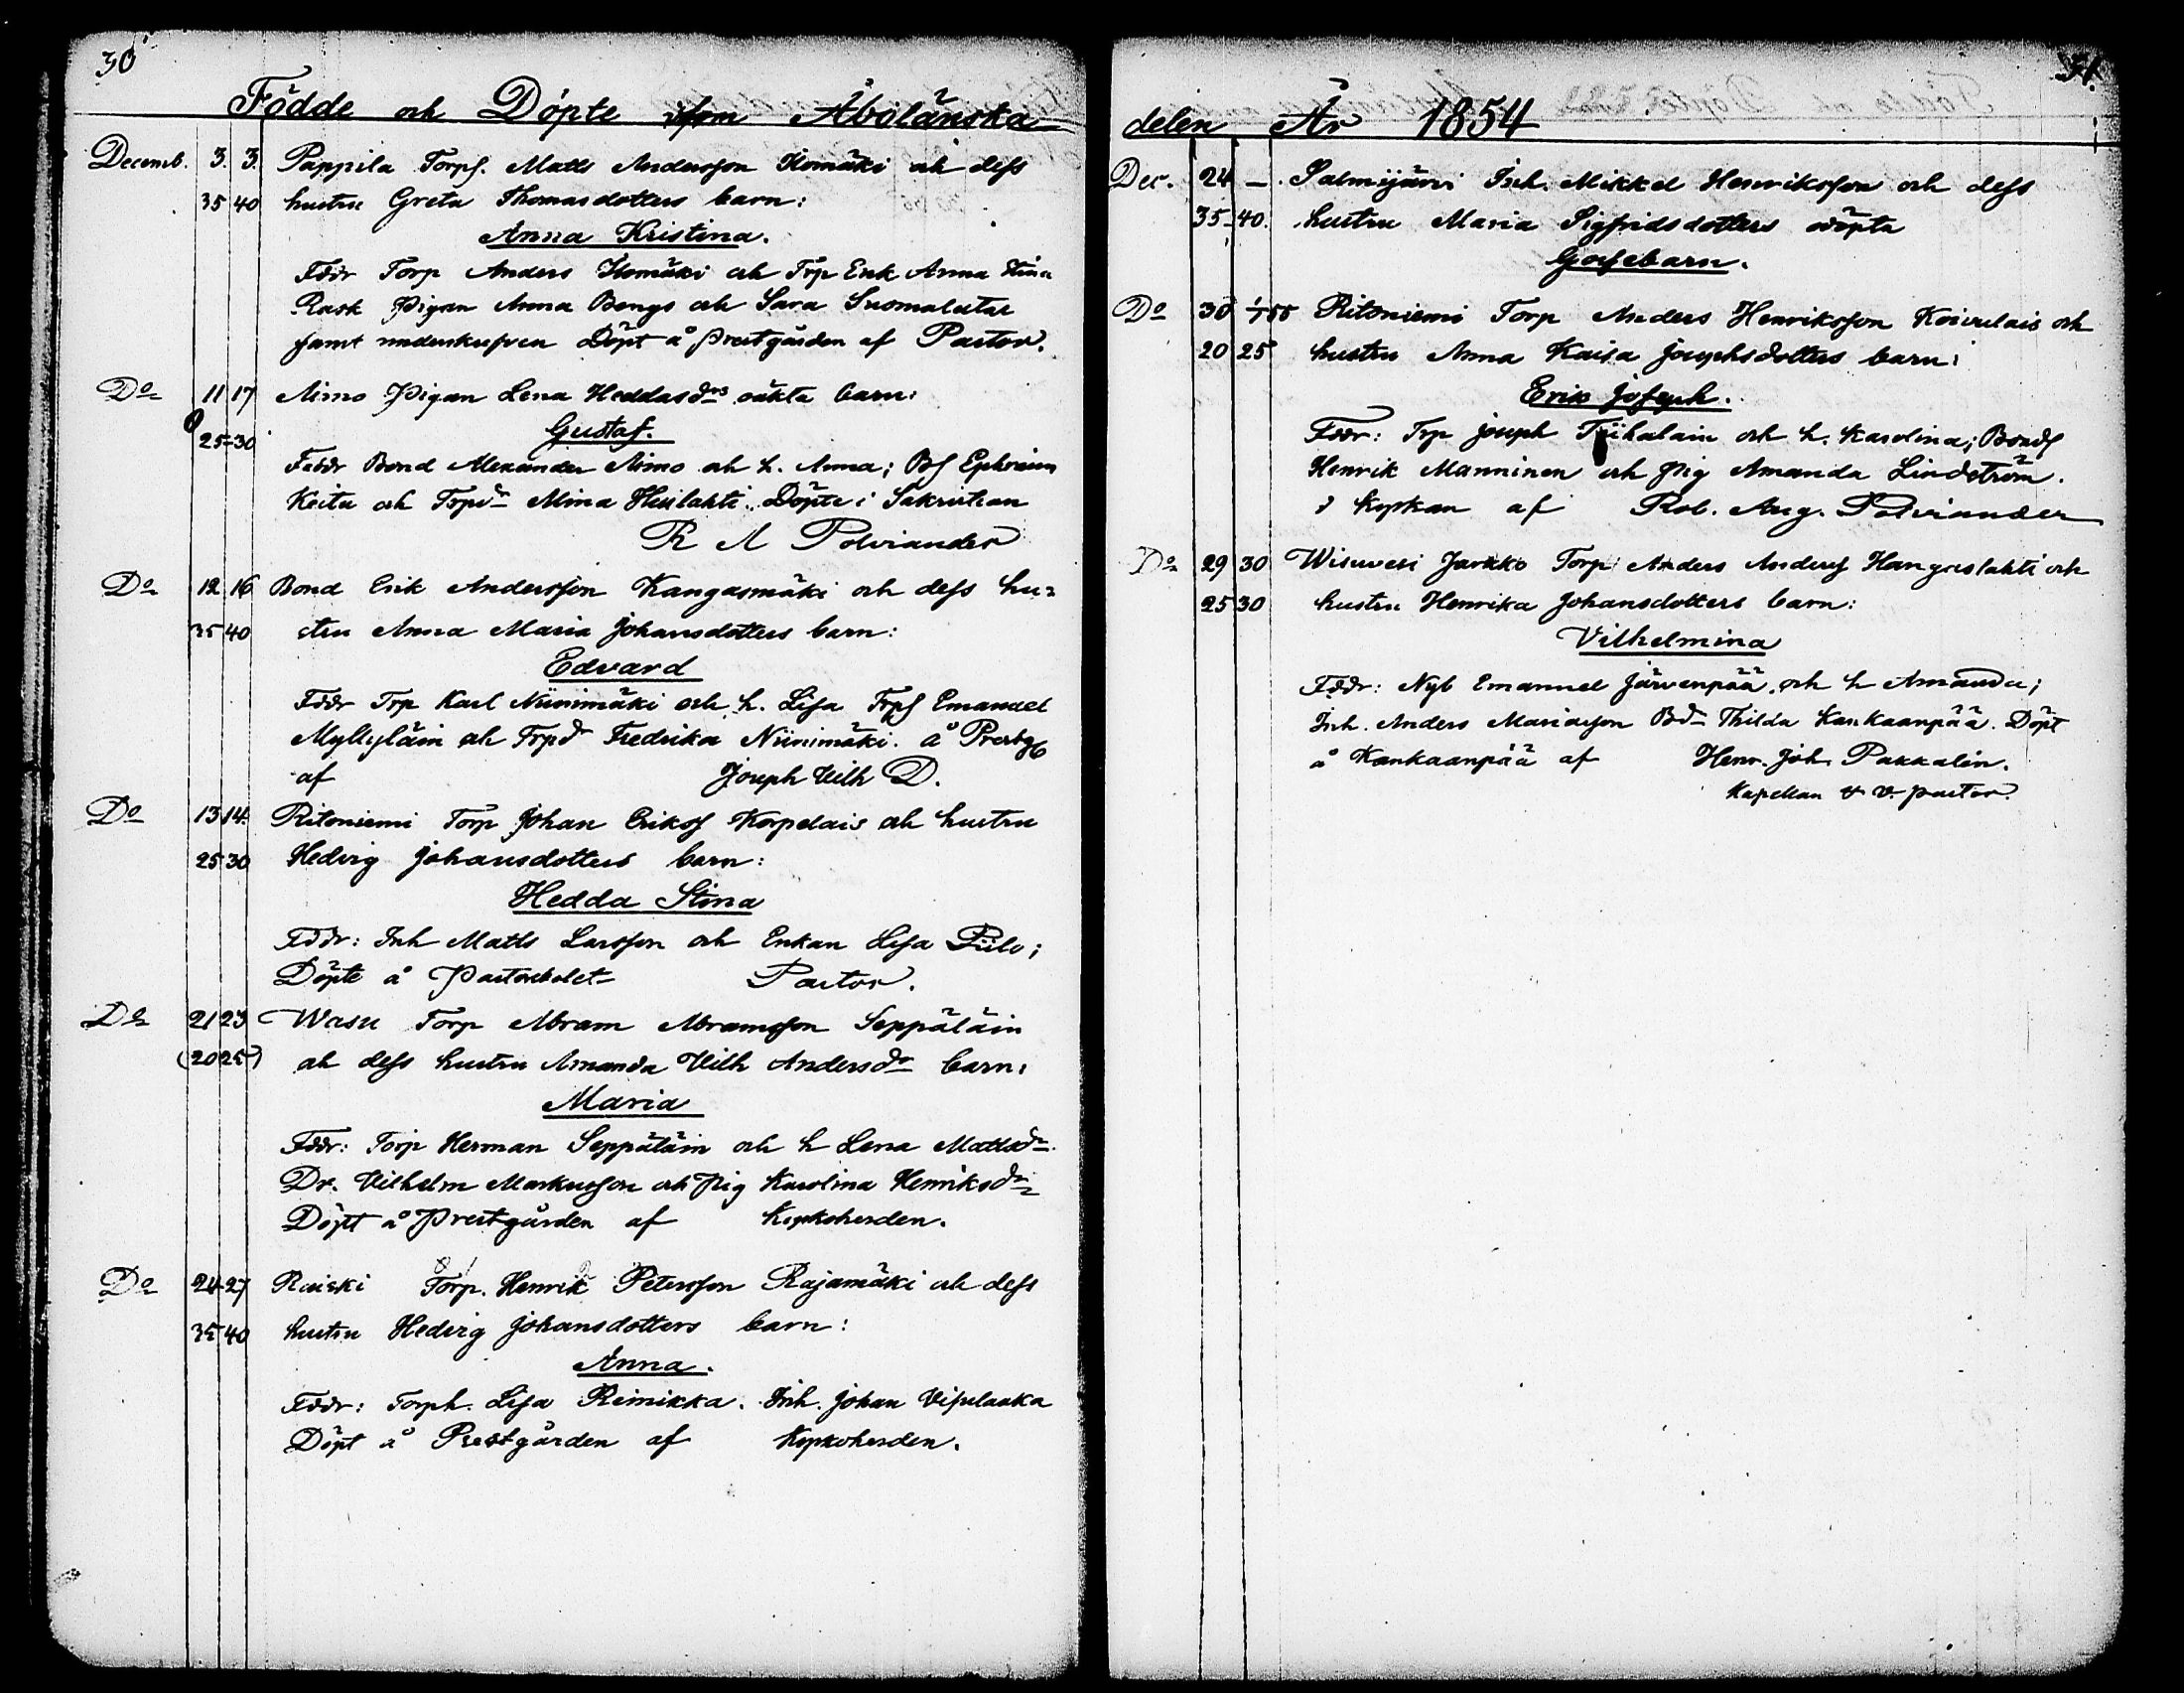 30
Födde och Döpte inom Åbolänska
Decemb. 3. 3. Pappila Torps. Matts Andersson Ilomäki och dess
35 40 hustru Greta Thomasdotters barn:
Anna Kristina.
Fddr Torp Anders Ilomäki och Trp Enk Anna Stina
Rask Pigan Anna Bengs och Sara Suomalutar
samt underskrifven Döpt å Prestgården af Pastor.
Do 11 17 Nimo Pigan Lena Heddasdrs oäkta barn:
25-30 Gustaf.
Faddr Bond Alexander Nimo och h. Anna; Bs Ephraim
Keitu och Trpdr Mina Heilahti. Döpte i Sakristian
R A Polviander
Do 12 16 Bond Erik Andersson Kangasmäki och dess hu-
35 40 stru Anna Maria Johansdotters barn:
Edvard
Fddr Trp Karl Niinimäki och h. Lisa Trps Emanuel
Myllyläin och Trpdr Fredrika Niinimäki. å Prestg
af Joseph Vilh D.
Do 13 14. Ritoniemi Torp Johan Eriks Korpelais och hustru
25 30 Hedvig Johansdotters barn:
Hedda Stina
Fddr: Inh Matts Larsson och Enkan Lisa Piilo;
Döpte å Pastorsbolet Pastor.
Do 21 23 Wasu Torp Abram Abramsson Seppäläin
(20 25) och dess hustru Amanda Vilh Andersdr barn:
Maria
Fddr: Torp Herman Seppäläin och h Lena Mattsdr.
Dr. Vilhelm Markusson och Pig Karolina Henriksdr
Döpt å Prestgården af Kyrkoherden.
Do 24 27 Raiski Torp. Henrik Petersson Rajamäki och dess
35 40 hustru Hedvig Johansdotters barn:
Anna.
Fddr: Torph. Lisa Reinikka. Inh. Johan Visulaaka
Döpt å Prestgården af Kyrkoherden.
31.
delen År 1854
Dec. 24 —. Salmijärvi Inh. Mikkel Henriksson och dess
35-40. hustru Maria Sigfridsdotters odöpta
Gossebarn.
Do 30 1/1 55 Ritoniemi Torp Anders Henriksson Koivulais och
20 25 hustru Anna Kaisa Josephsdotters barn:
Erik Joseph.
Fddr: Trp Joseph Tiihalain och h. Karolina; Bonds
Henrik Manninen och Pig Amanda Lindström.
i kyrkan af Rob. Aug. Polviander
Do 29 30 Wisuvesi Jarkko Torp Anders Anders Hangaslahti och
25 30 hustru Henrika Johansdotters barn:
Vilhelmina
Fddr: Nyb Emanuel Järvenpää och h Amanda;
Inh. Anders Mariasson Bdr Thilda Kankaanpää. Döpt
å Kankaanpää af Henr. Joh. Pakkalin.
Kapellan & v. pastor.